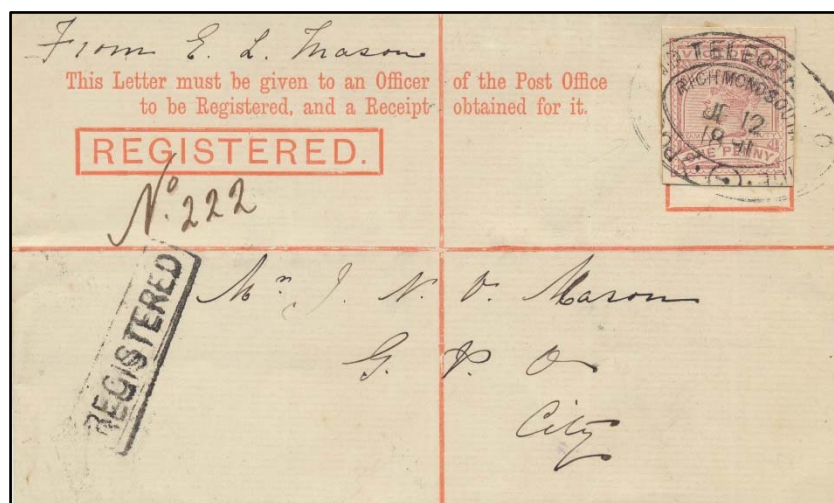 From E. L. Mason
This Letter must be given to an Officer of the Post Office
to be Registered, and a Receipt obtained for it.
REGISTERED.
No. 222
VICTORIA
TELEGRAPH
RICHMOND SOUTH
JE 12
1891
ONE PENNY
REGISTERED
Mr J. N. O. Mason
G. P. O
City